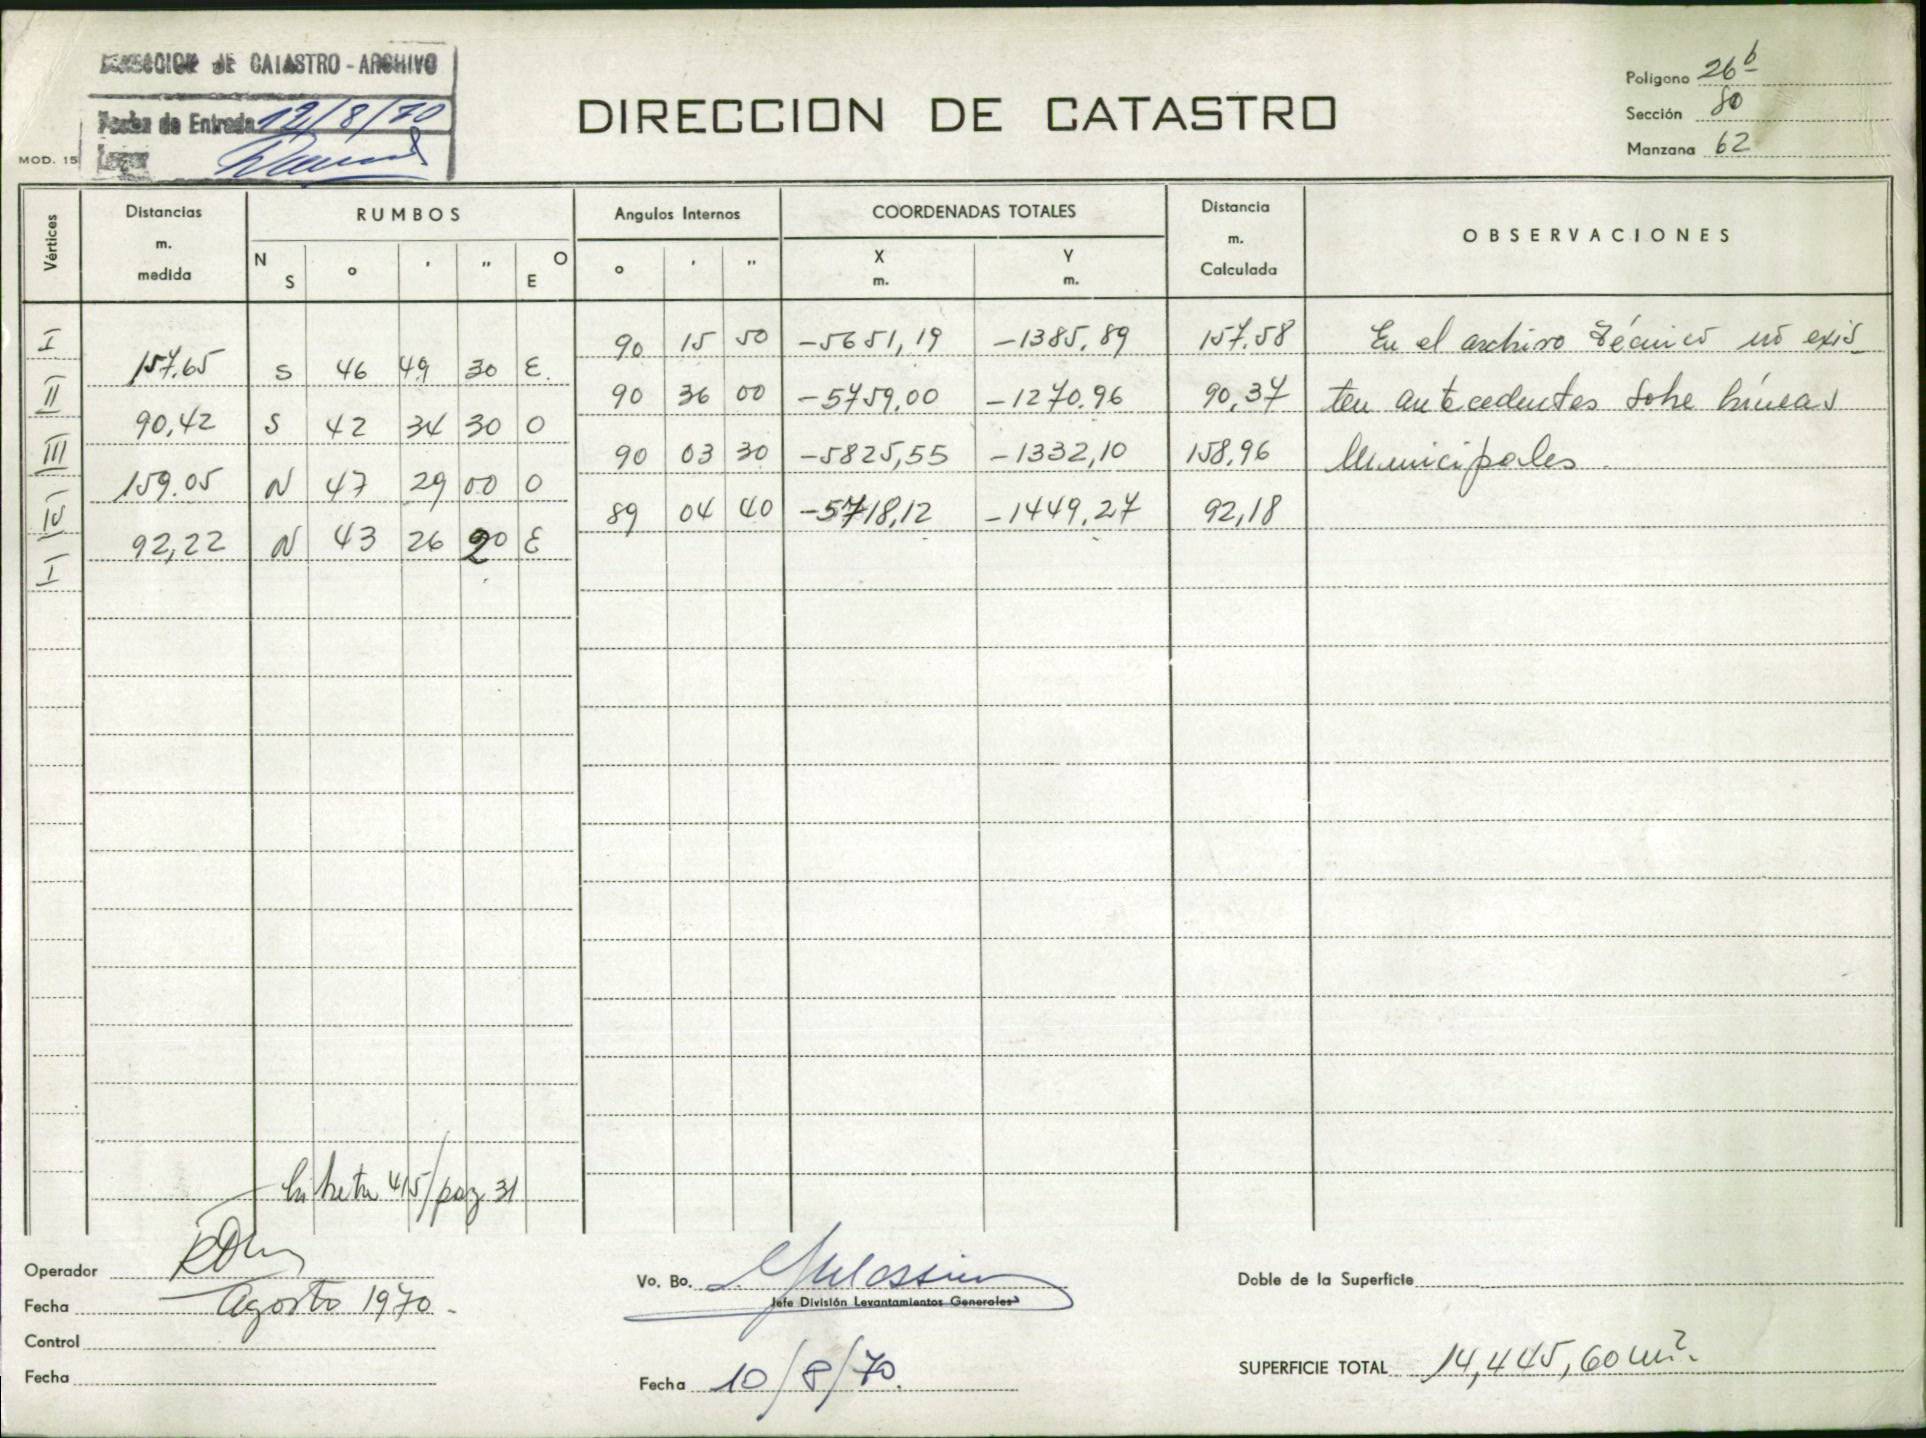 DIRECCION DE CATASTRO - ARCHIVO
Fecha de Entrada 12/8/70
Legajo
MOD. 15
DIRECCION DE CATASTRO
Polígono 26 b
Sección 80
Manzana 62
Vértices
Distancias m. medida
RUMBOS
N S ° ' " O E
Angulos Internos
° ' "
COORDENADAS TOTALES
X m. Y m.
Distancia m. Calculada
OBSERVACIONES
I 90 15 50 -5651,19 -1385,89 157.58 En el archivo técnico no exis
157.65 S 46 49 30 E.
II 90 36 00 -5759,00 -1270.96 90,37 ten antecedentes sobre Líneas
90,42 S 42 34 30 O
III 90 03 30 -5825,55 -1332,10 158,96 Municipales.
159.05 N 47 29 00 O
IV 89 04 40 -5718,12 -1449,27 92,18
92,22 N 43 26 20 E
I
Libreta 415/pag 31
Operador
Fecha Agosto 1970.
Control
Fecha
Vo. Bo.
Jefe División Levantamientos Generales
Fecha 10/8/70.
Doble de la Superficie
SUPERFICIE TOTAL 14,445,60 m².